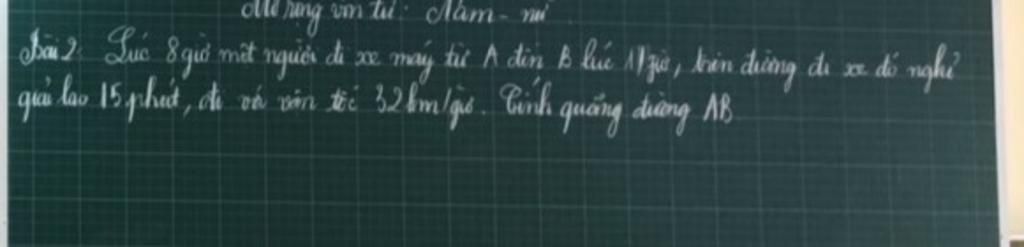 Mở rộng vốn từ: Nam - nữ
Bài 2: Lúc 8 giờ một người đi xe máy từ A đến B lúc 11 giờ, trên đường đi xe đó nghỉ
giải lao 15 phút, đi với vận tốc 32km/giờ. Tính quãng đường AB